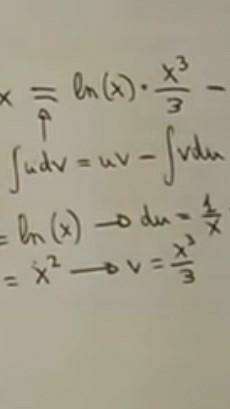 x = ln(x) · x³/3 −
↑
∫udv = uv − ∫vdu
= ln(x) → du = 1/x
= x² → v = x³/3